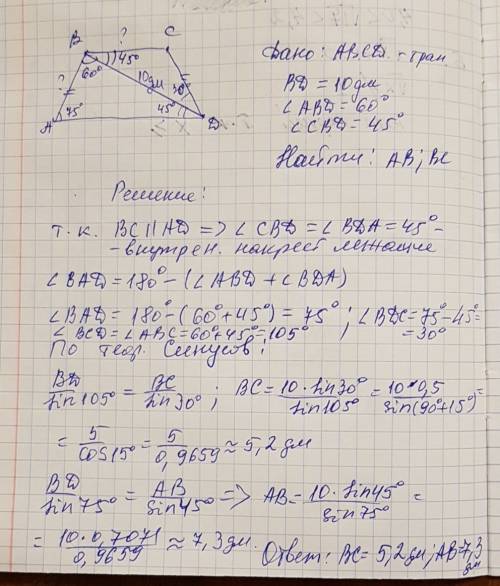 ?
B
C
45°
60°
10дм
30°
?
A
75°
45°
D
Дано: ABCD - трап
BD = 10дм
∠ABD = 60°
∠CBD = 45°
Найти: AB; BC
Решение:
т.к. BC || AD => ∠CBD = ∠BDA = 45° -
- внутрен. накрест лежащие
∠BAD = 180° - (∠ABD + ∠BDA)
∠BAD = 180° - (60° + 45°) = 75°; ∠BDC = 75° - 45° =
= 30°
∠BCD = ∠ABC = 60° + 45° = 105°
По теор. Синусов:
BD/sin105° = BC/sin30°; BC = 10·sin30°/sin105° = 10·0,5/sin(90°+15°) =
= 5/cos15° = 5/0,9659 ≈ 5,2 дм
BD/sin75° = AB/sin45° => AB = 10·sin45°/sin75° =
= 10·0,7071/0,9659 ≈ 7,3 дм.
Ответ: BC = 5,2 дм; AB = 7,3 дм